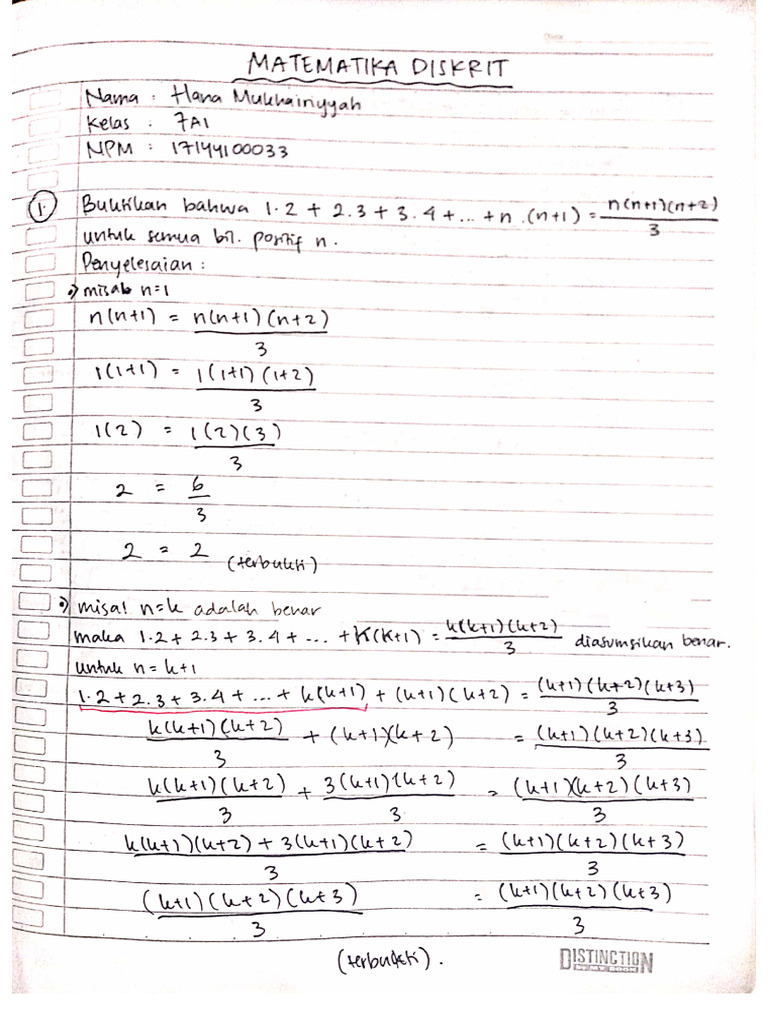 MATEMATIKA DISKRIT
Nama : Hana Mukhairiyyah
Kelas : 7A1
NPM : 17144100033
1. Buktikan bahwa 1.2 + 2.3 + 3.4 + ... + n.(n+1) = n(n+1)(n+2)/3
untuk semua bil. positif n.
Penyelesaian :
•) misal n=1
n(n+1) = n(n+1)(n+2)/3
1(1+1) = 1(1+1)(1+2)/3
1(2) = 1(2)(3)/3
2 = 6/3
2 = 2 (terbukti)
•) misal n=k adalah benar
maka 1.2 + 2.3 + 3.4 + ... + k(k+1) = k(k+1)(k+2)/3 diasumsikan benar.
untuk n = k+1
1.2 + 2.3 + 3.4 + ... + k(k+1) + (k+1)(k+2) = (k+1)(k+2)(k+3)/3
k(k+1)(k+2)/3 + (k+1)(k+2) = (k+1)(k+2)(k+3)/3
k(k+1)(k+2)/3 + 3(k+1)(k+2)/3 = (k+1)(k+2)(k+3)/3
k(k+1)(k+2) + 3(k+1)(k+2)/3 = (k+1)(k+2)(k+3)/3
(k+1)(k+2)(k+3)/3 = (k+1)(k+2)(k+3)/3
(terbukti).
DISTINCTION